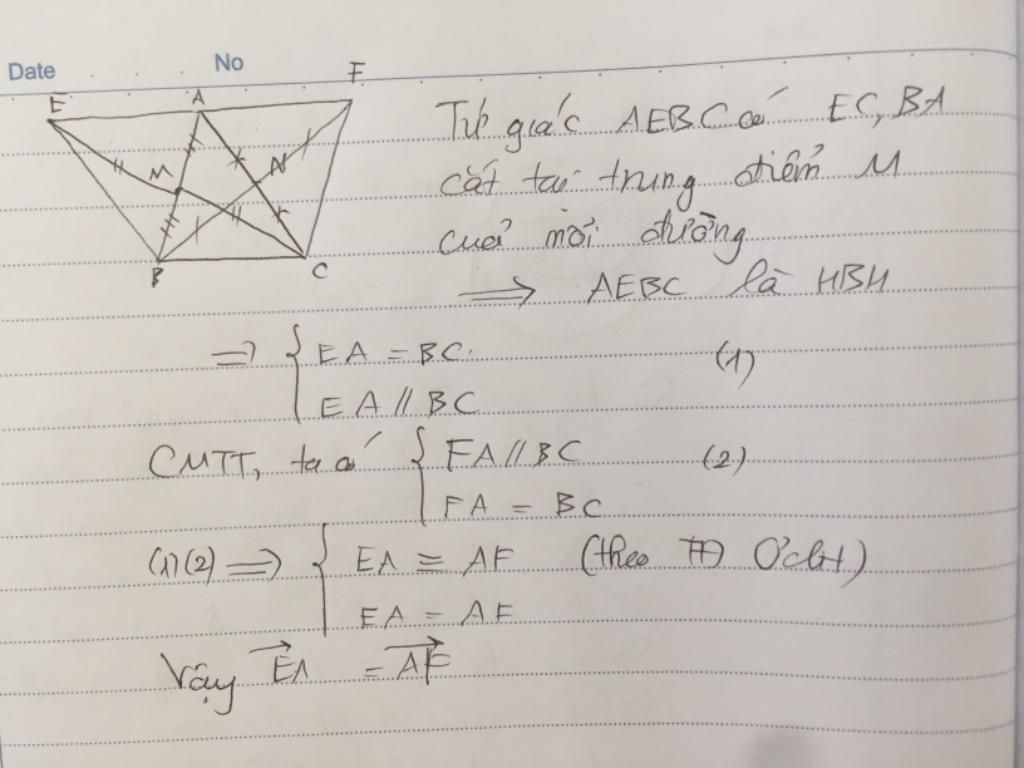 Date No
E A F
M N
B C
Tứ giác AEBC có EC, BA
cắt tại trung điểm M
của mỗi đường
⟹ AEBC là HBH
⟹ { EA = BC. (1)
EA // BC
CMTT, ta có { FA // BC (2)
FA = BC
(1)(2) ⟹ { EA ≡ AF (theo TĐ Ơclit)
EA = AF
Vậy \overrightarrow{EA} = \overrightarrow{AF}